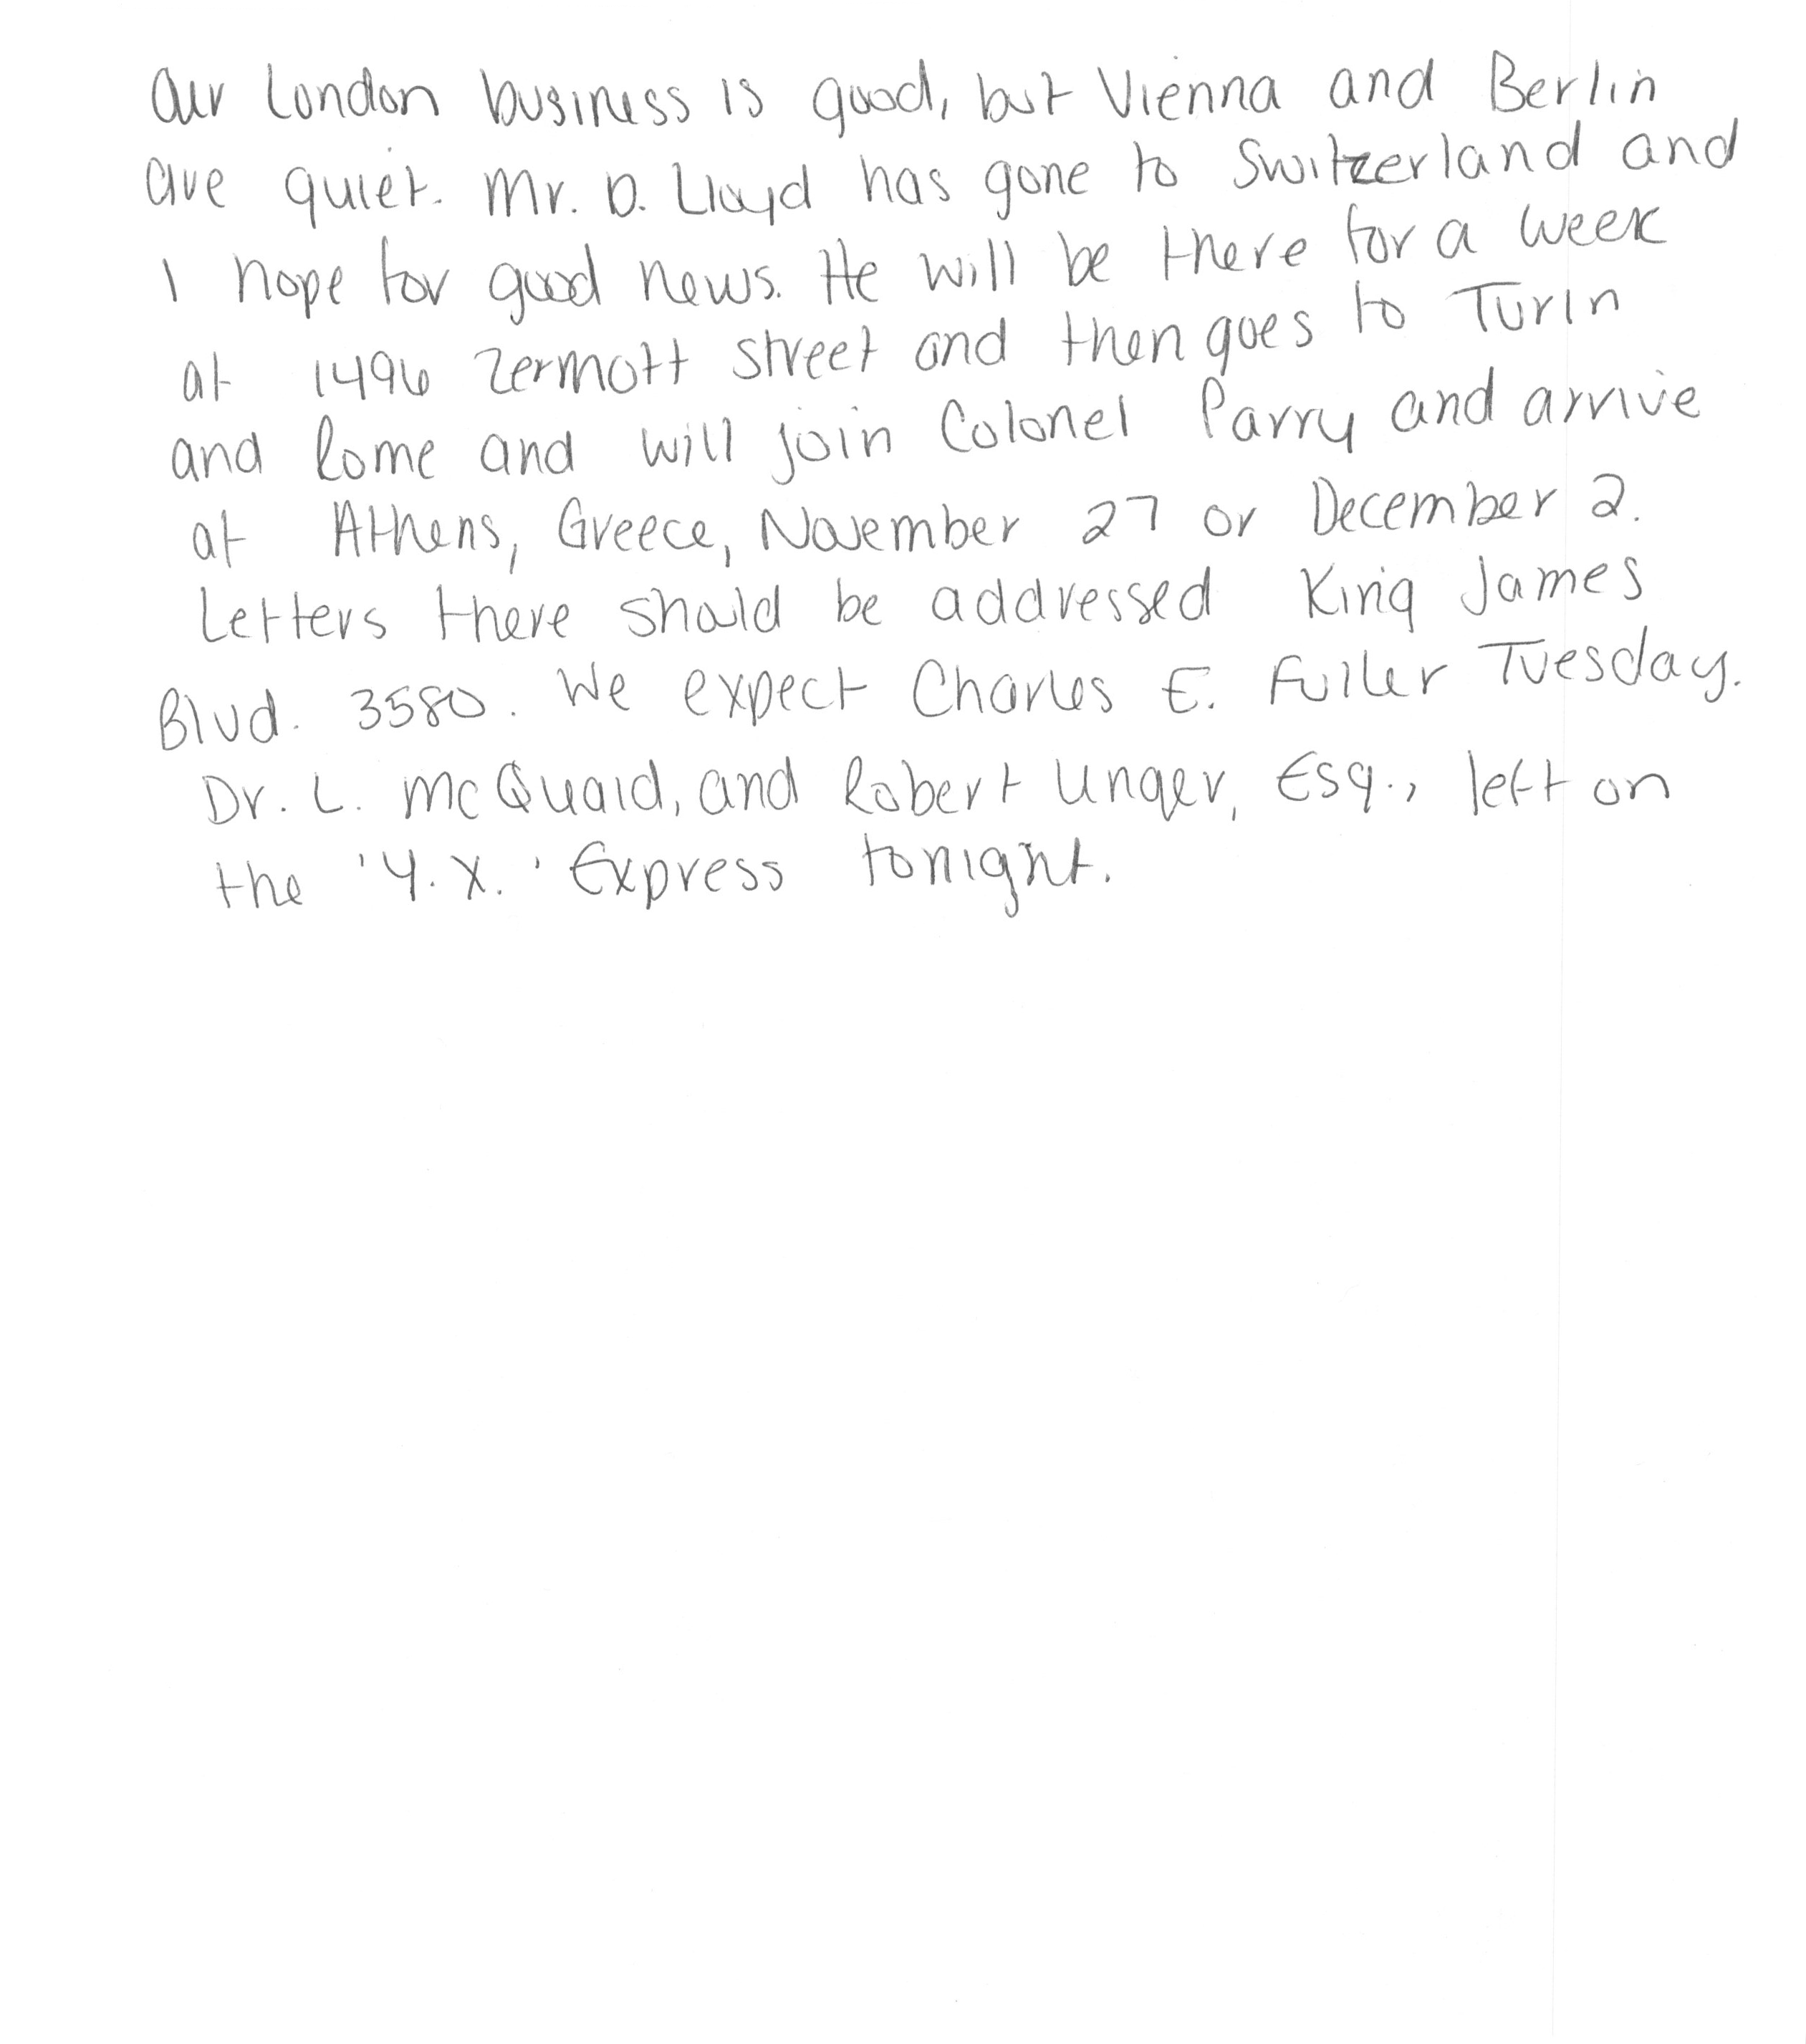 Our London business is good, but Vienna and Berlin
are quiet. Mr. D. Lloyd has gone to Switzerland and
I hope for good news. He will be there for a week
at 1496 Zermott street and then goes to Turin
and Rome and will join Colonel Parry and arrive
at Athens, Greece, November 27 or December 2.
Letters there should be addressed King James
Blvd. 3580. We expect Charles E. Fuller Tuesday.
Dr. L. McQuaid, and Robert Unger, Esq., left on
the 'Y.X.' Express tonight.